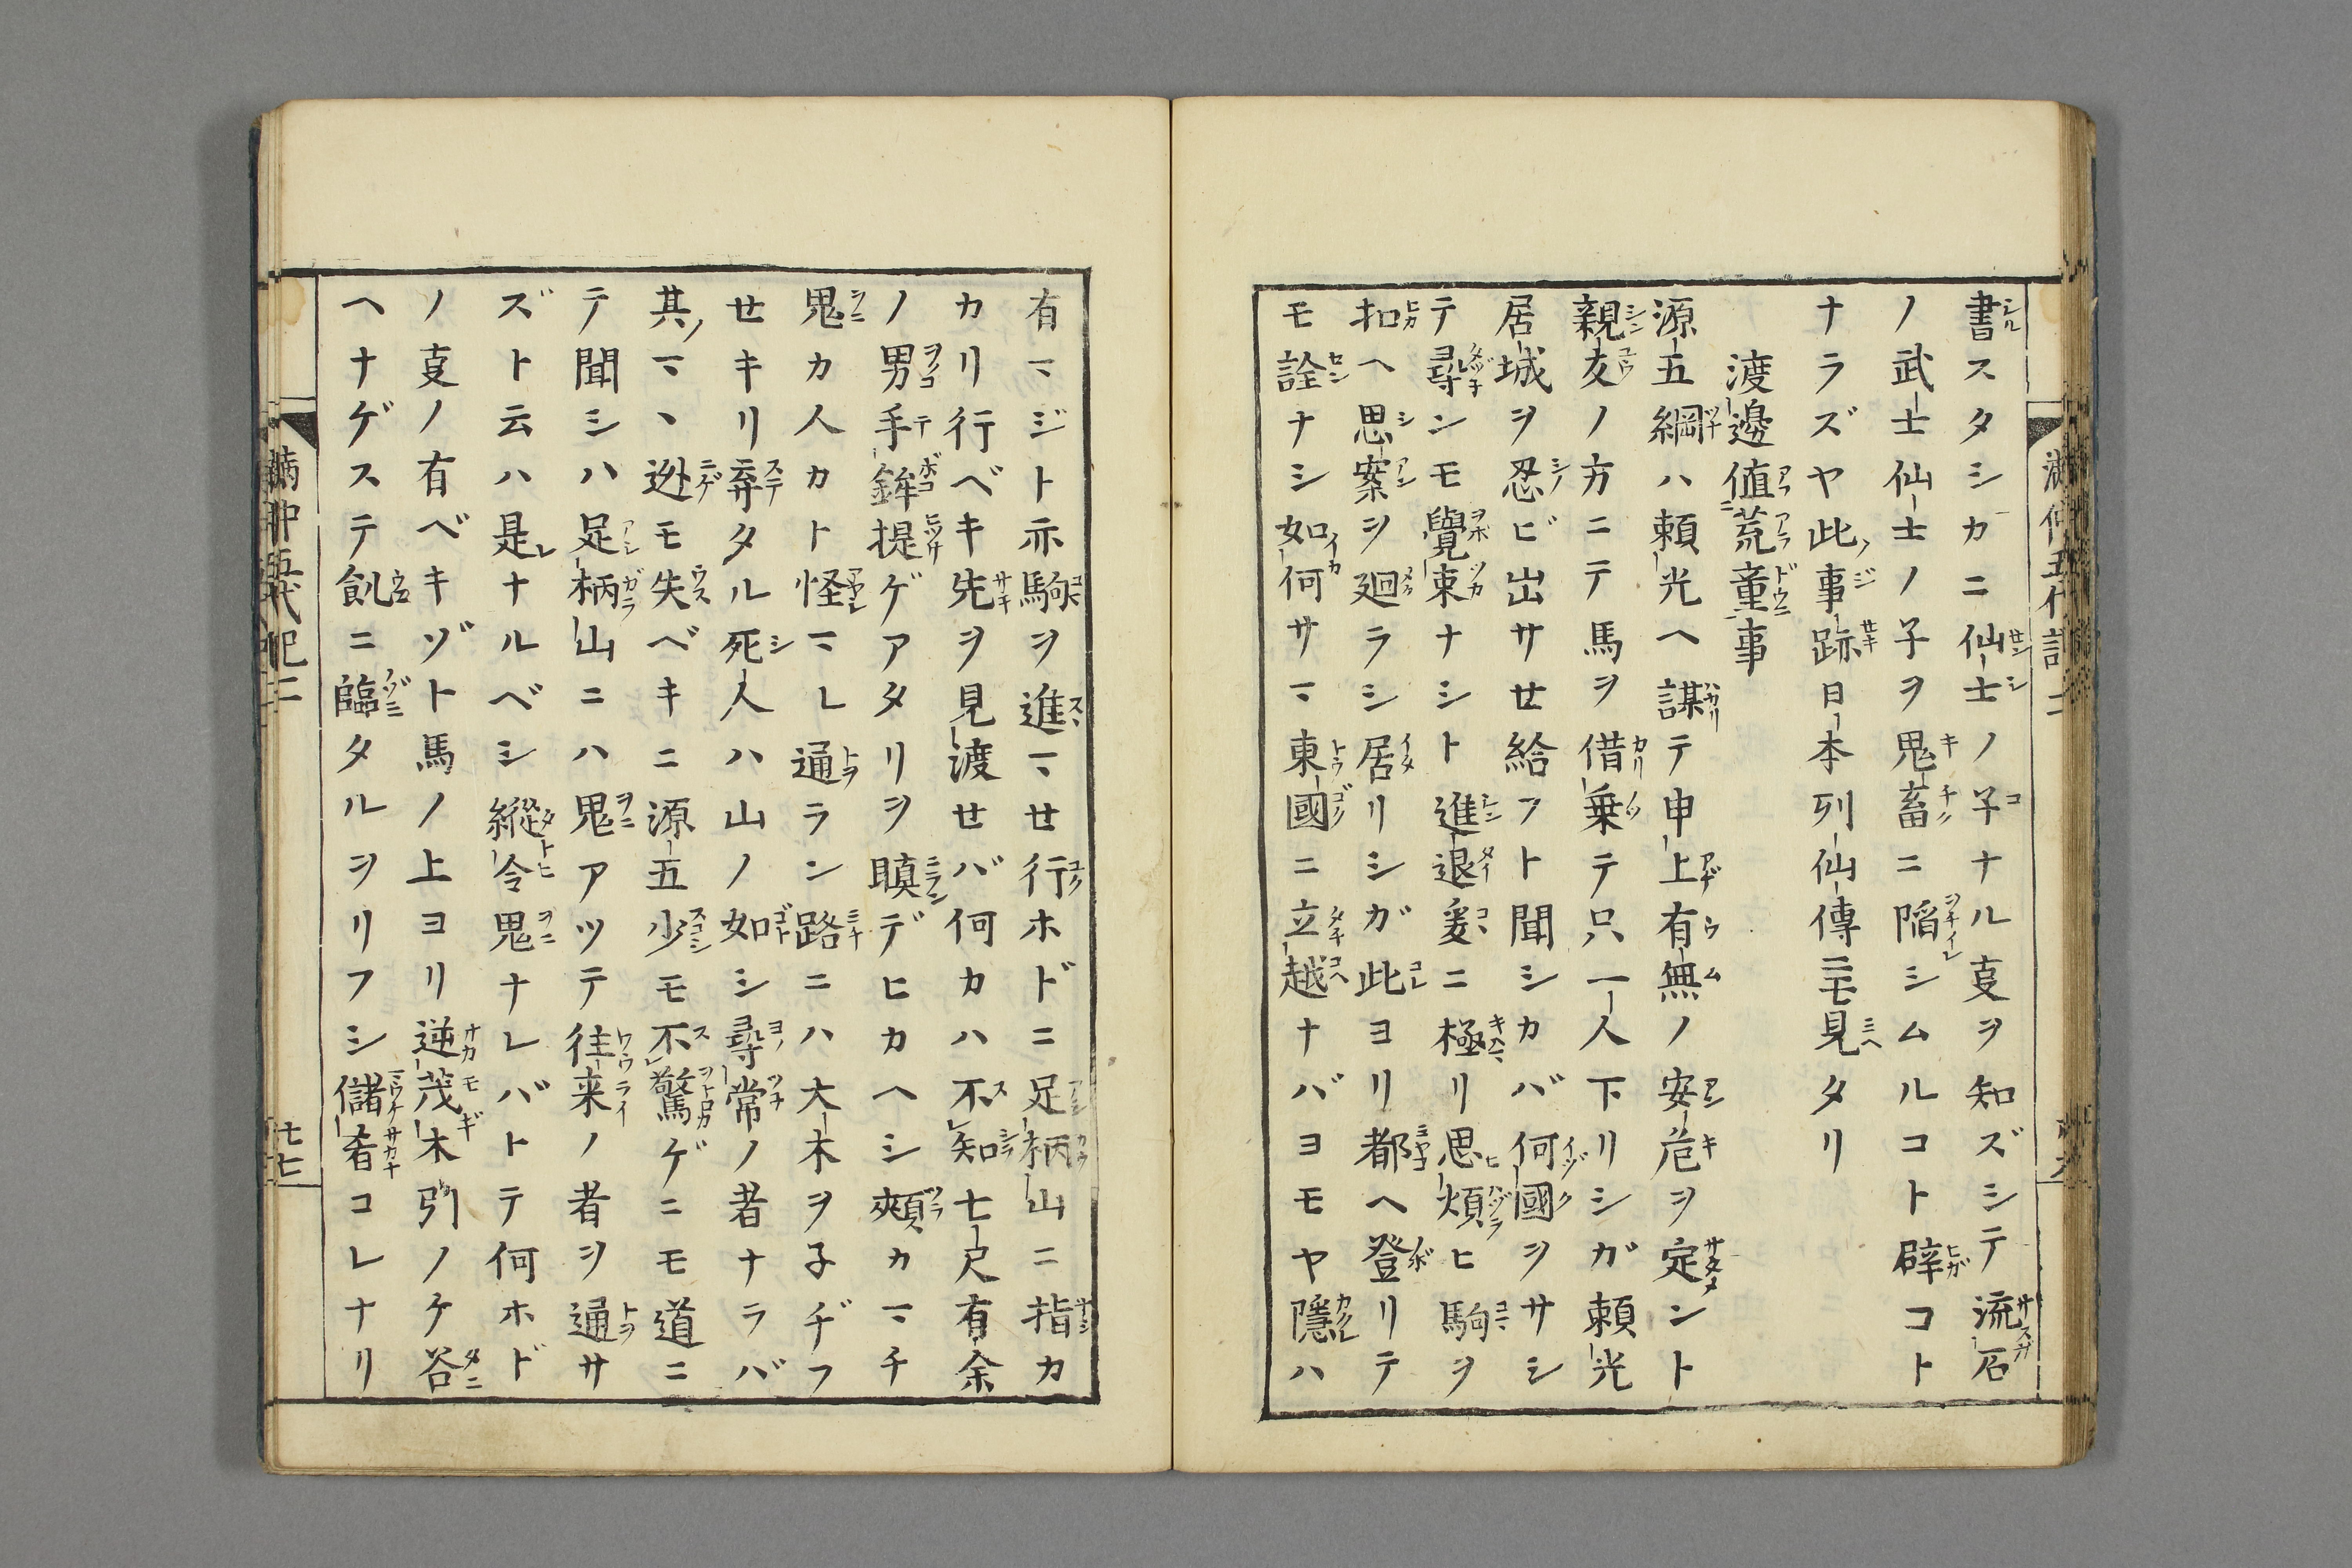 書スタシカニ仙士ノ子ナル㕝ヲ知ズシテ流石
ノ武士仙士ノ子ヲ鬼畜ニ陷シムルコト辟コト
ナラズヤ此事跡日本列仙傳ニモ見タリ
渡邊値荒童事
源五綱ハ頼光ヘ謀テ申上有無ノ安危ヲ定ント
親友ノ方ニテ馬ヲ借乗テ只一人下リシガ頼光
居城ヲ忍ビ出サせ給フト聞シカバ何國ヲサシ
テ尋ンモ覺束ナシト進退爰ニ極リ思煩ヒ駒ヲ
扣ヘ思案ヲ廻ラシ居リシガ此ヨリ都ヘ登リテ
モ詮ナシ如何サマ東國ニ立越ナバヨモヤ隱ハ
有マジト亦駒ヲ進マせ行ホドニ足柄山ニ指カ
カリ行ベキ先ヲ見渡せバ何カハ不知七尺有余
ノ男手鉾提ゲアタリヲ瞋デヒカヘシ頰カマチ
鬼カ人カト怪マレ通ラン路ニハ大木ヲ子ヂフ
せキリ弃タル死人ハ山ノ如シ尋常ノ者ナラバ
其マヽ迯モ失ベキニ源五少モ不驚ゲニモ道ニ
テ聞シハ足柄山ニハ鬼アツテ往来ノ者ヲ通サ
ズト云ハ是ナルベシ縱令鬼ナレバトテ何ホド
ノ㕝ノ有ベキゾト馬ノ上ヨリ逆茂木引ノケ谷
ヘナゲステ飢ニ臨タルヲリフシ儲肴コレナリ
満仲五代記二
七七